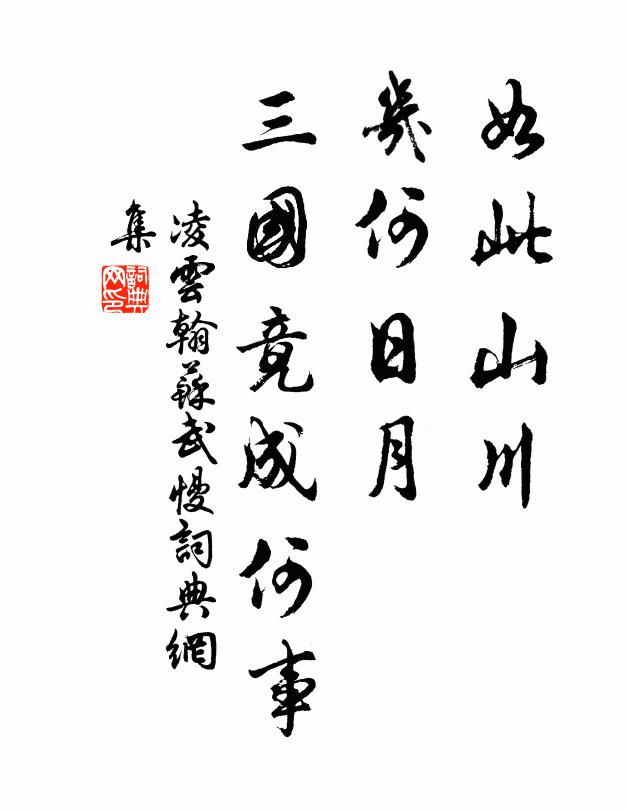 如此山川
幾何日月
三國竟成何事
凌雲翰蘇武慢詞典網
集
詞典網印